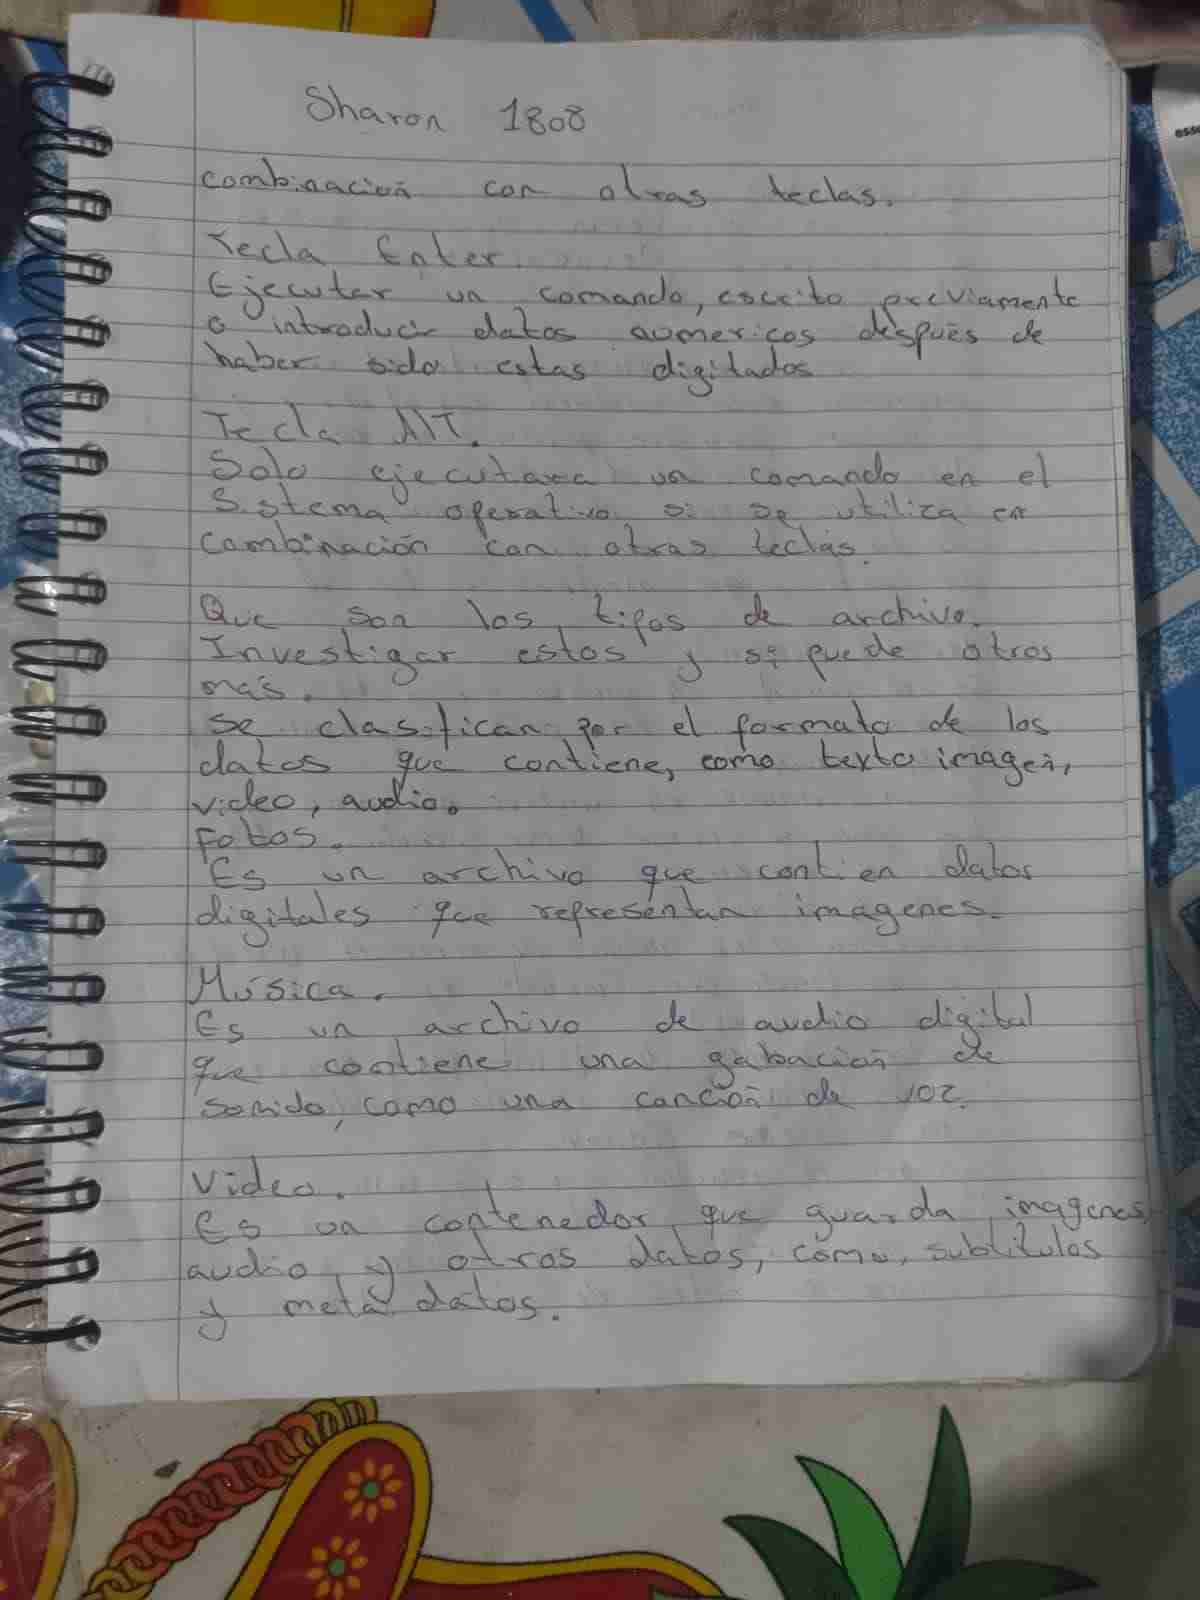 Sharon 1808
combinación con otras teclas.
Tecla Enter.
Ejecutar un comando, escrito previamente
o introducir datos numericos después de
haber sido estas digitados
Tecla AlT.
Solo ejecutara un comando en el
Sistema operativo si se utiliza en
combinación con otras teclas.
Que son los tipos de archivo.
Investigar estos y si puede otros
más.
se clasifican por el formato de los
datos que contiene, como texto imagen,
video, audio.
Fotos.
Es un archivo que contien datos
digitales que representan imagenes.
Música.
Es un archivo de audio digital
que contiene una gabación de
sonido, como una canción de voz.
Video.
Es un contenedor que guarda imagenes,
audio y otros datos, como, subtitulos
y meta datos.